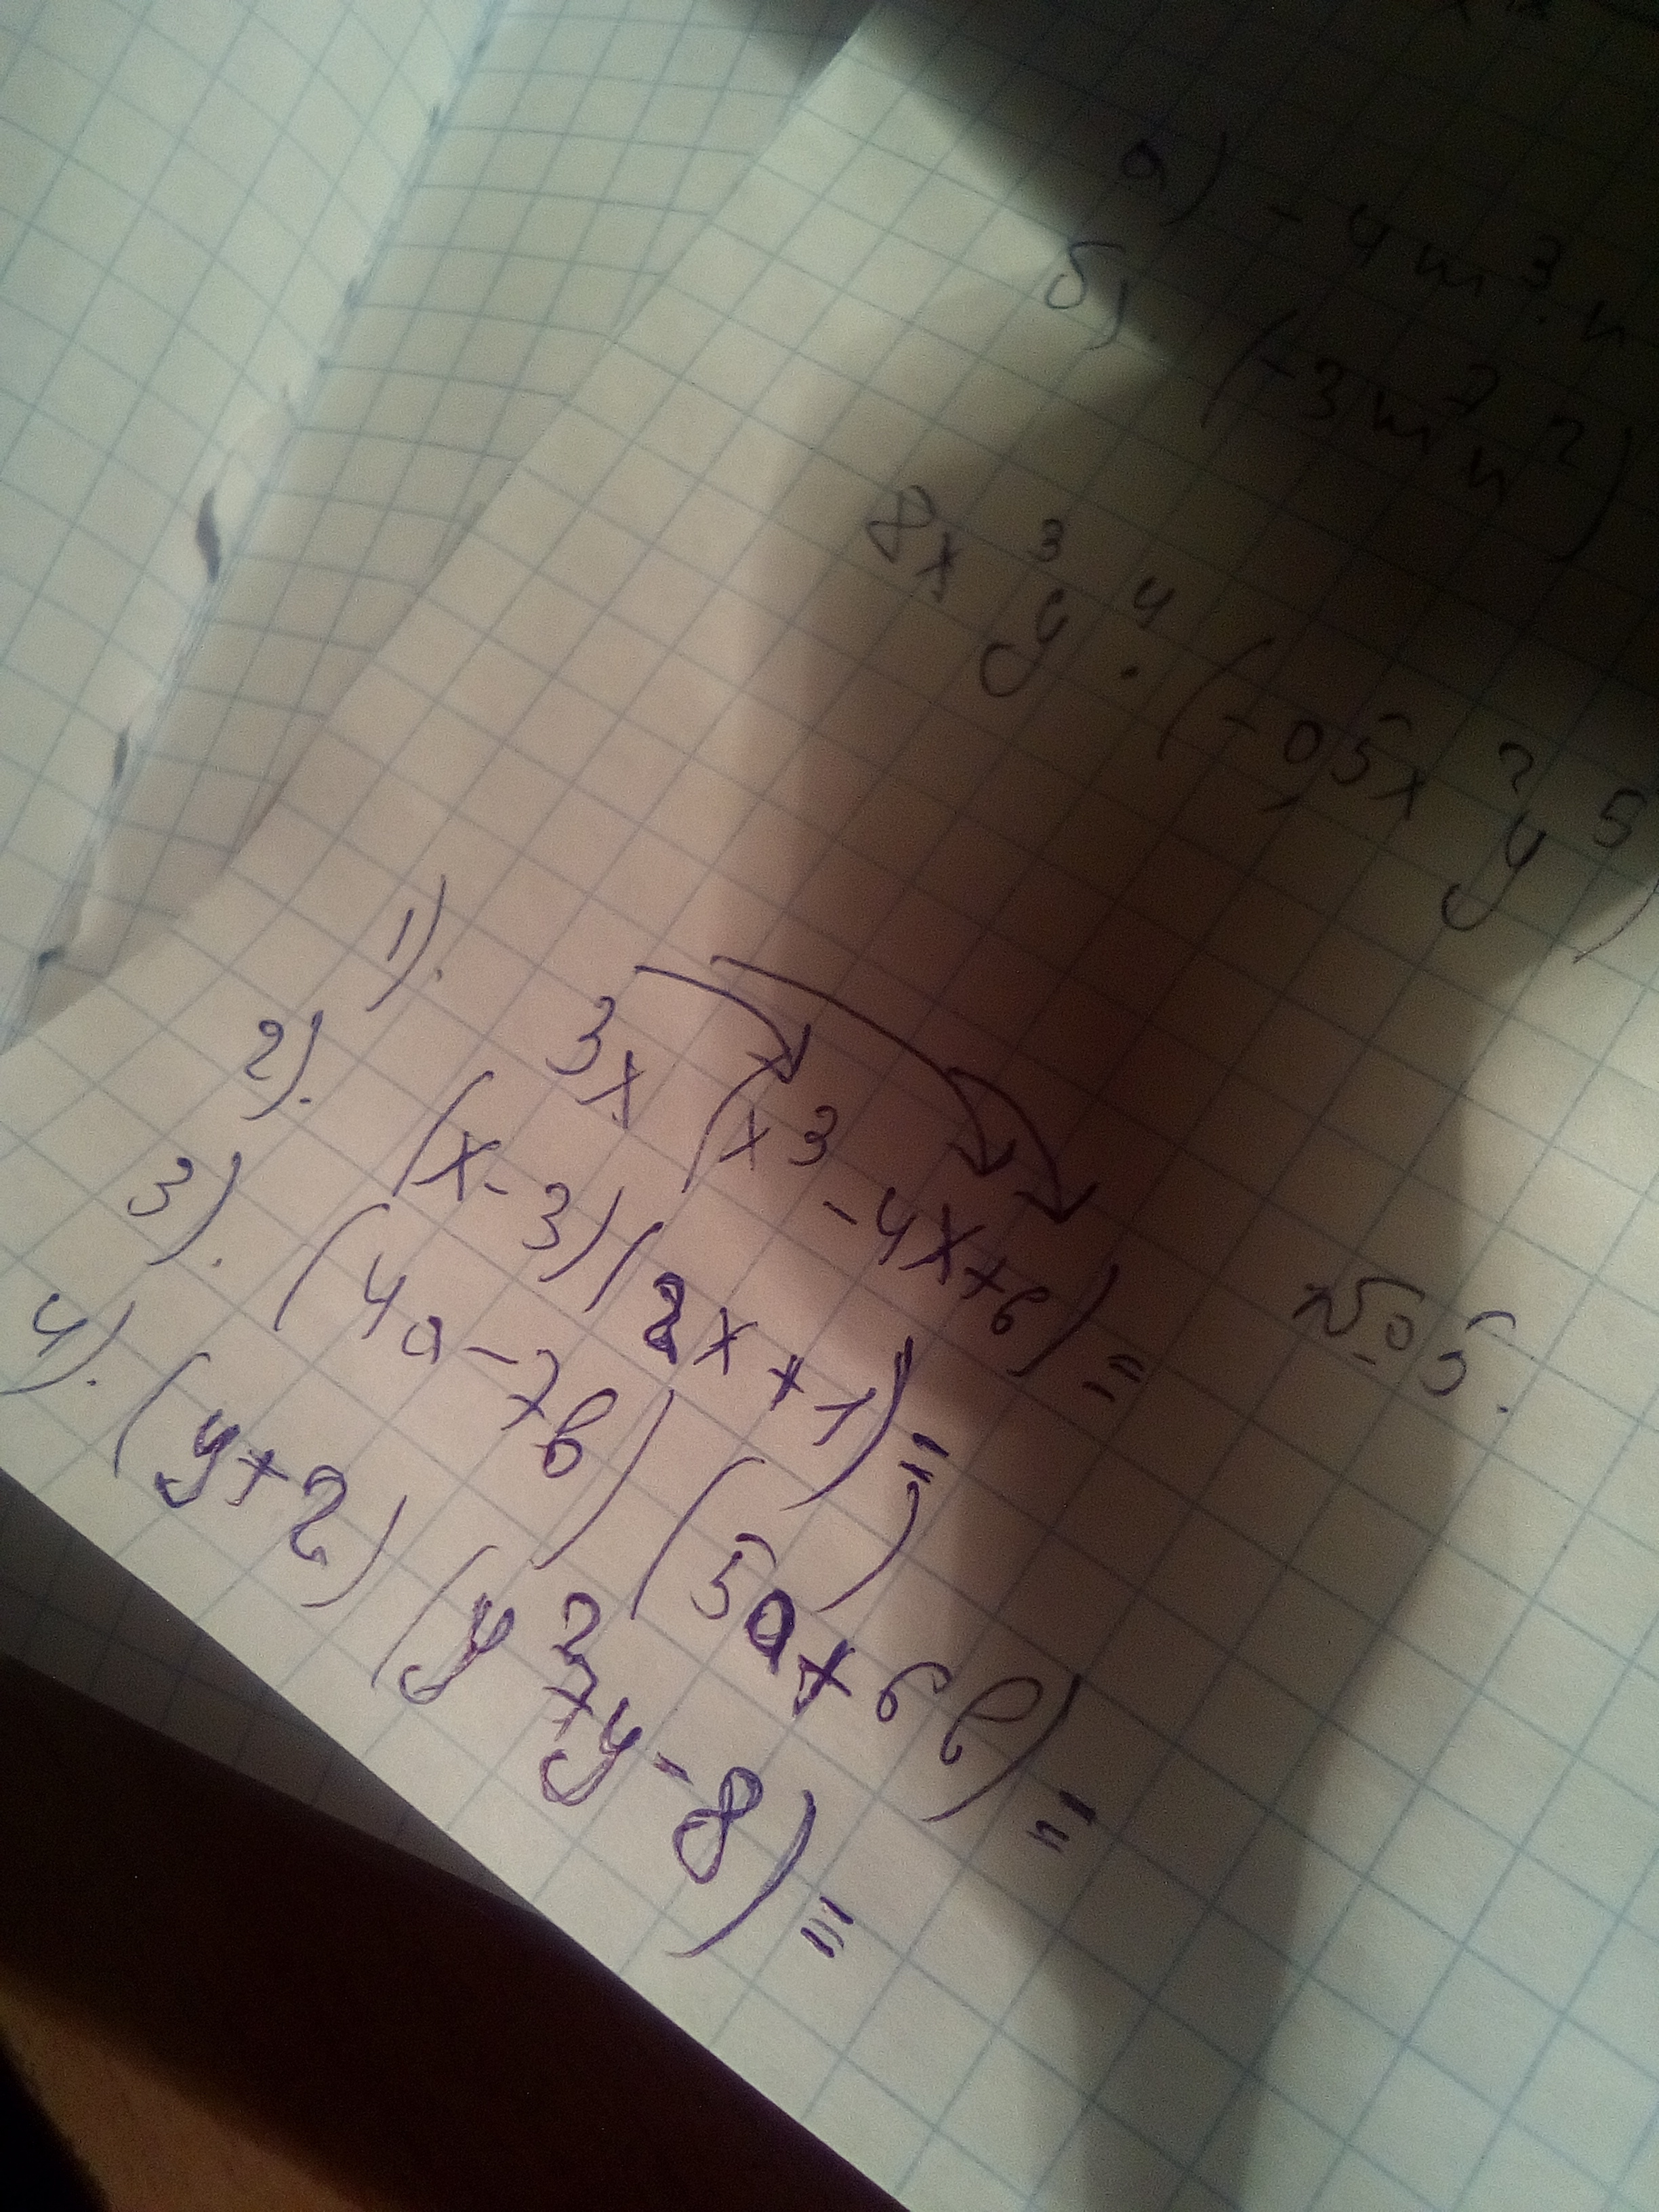 а) -4m³n
б) (-3m⁷n²)
8x³y⁴·(-0,5x²y⁵)
№5.
1). 3x(x3-4x+6)=
2). (x-3)(2x+1)=
3). (4a-7b)(5a+6b)=
4). (y+2)(y²+y-8)=